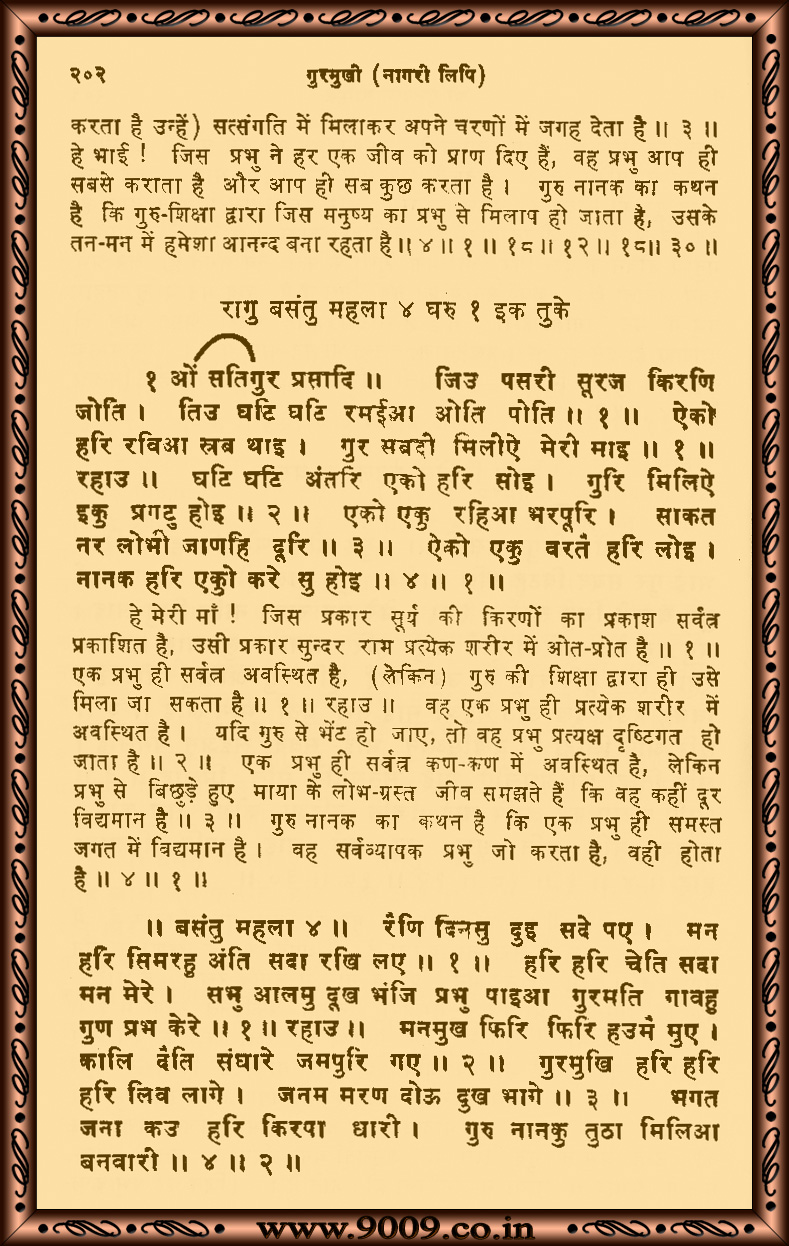 २०२ गुरमुखी (नागरी लिपि)
करता है उन्हें) सत्संगति में मिलाकर अपने चरणों में जगह देता है ॥ ३ ॥
हे भाई ! जिस प्रभु ने हर एक जीव को प्राण दिए हैं, वह प्रभु आप ही
सबसे कराता है और आप ही सब कुछ करता है । गुरु नानक का कथन
है कि गुरु-शिक्षा द्वारा जिस मनुष्य का प्रभु से मिलाप हो जाता है, उसके
तन-मन में हमेशा आनन्द बना रहता है ॥ ४ ॥ १ ॥ १८ ॥ १२ ॥ १८ ॥ ३० ॥
रागु बसंतु महला ४ घरु १ इक तुके
१ ओं सतिगुर प्रसादि ॥ जिउ पसरी सूरज किरणि
जोति । तिउ घटि घटि रमईआ ओति पोति ॥ १ ॥ ऐको
हरि रविआ स्रब थाइ । गुर सबदी मिलीऐ मेरी माइ ॥ १ ॥
रहाउ ॥ घटि घटि अंतरि एको हरि सोइ । गुरि मिलिऐ
इकु प्रगटु होइ ॥ २ ॥ एको एकु रहिआ भरपूरि । साकत
नर लोभी जाणहि दूरि ॥ ३ ॥ ऐको एकु वरतै हरि लोइ ।
नानक हरि एकुो करे सु होइ ॥ ४ ॥ १ ॥
हे मेरी माँ ! जिस प्रकार सूर्य की किरणों का प्रकाश सर्वत्र
प्रकाशित है, उसी प्रकार सुन्दर राम प्रत्येक शरीर में ओत-प्रोत है ॥ १ ॥
एक प्रभु ही सर्वत्र अवस्थित है, (लेकिन) गुरु की शिक्षा द्वारा ही उसे
मिला जा सकता है ॥ १ ॥ रहाउ ॥ वह एक प्रभु ही प्रत्येक शरीर में
अवस्थित है । यदि गुरु से भेंट हो जाए, तो वह प्रभु प्रत्यक्ष दृष्टिगत हो
जाता है ॥ २ ॥ एक प्रभु ही सर्वत्र कण-कण में अवस्थित है, लेकिन
प्रभु से बिछुड़े हुए माया के लोभ-ग्रस्त जीव समझते हैं कि वह कहीं दूर
विद्यमान है ॥ ३ ॥ गुरु नानक का कथन है कि एक प्रभु ही समस्त
जगत में विद्यमान है । वह सर्वव्यापक प्रभु जो करता है, वही होता
है ॥ ४ ॥ १ ॥
॥ बसंतु महला ४ ॥ रैणि दिनसु दुइ सदे पए । मन
हरि सिमरहु अंति सदा रखि लए ॥ १ ॥ हरि हरि चेति सदा
मन मेरे । सभु आलसु दूख भंजि प्रभु पाइआ गुरमति गावहु
गुण प्रभ केरे ॥ १ ॥ रहाउ ॥ मनमुख फिरि फिरि हउमै मुए ।
कालि दैति संघारे जमपुरि गए ॥ २ ॥ गुरमुखि हरि हरि
हरि लिव लागे । जनम मरण दोऊ दुख भागे ॥ ३ ॥ भगत
जना कउ हरि किरपा धारी । गुरु नानकु तुठा मिलिआ
बनवारी ॥ ४ ॥ २ ॥
www.9009.co.in